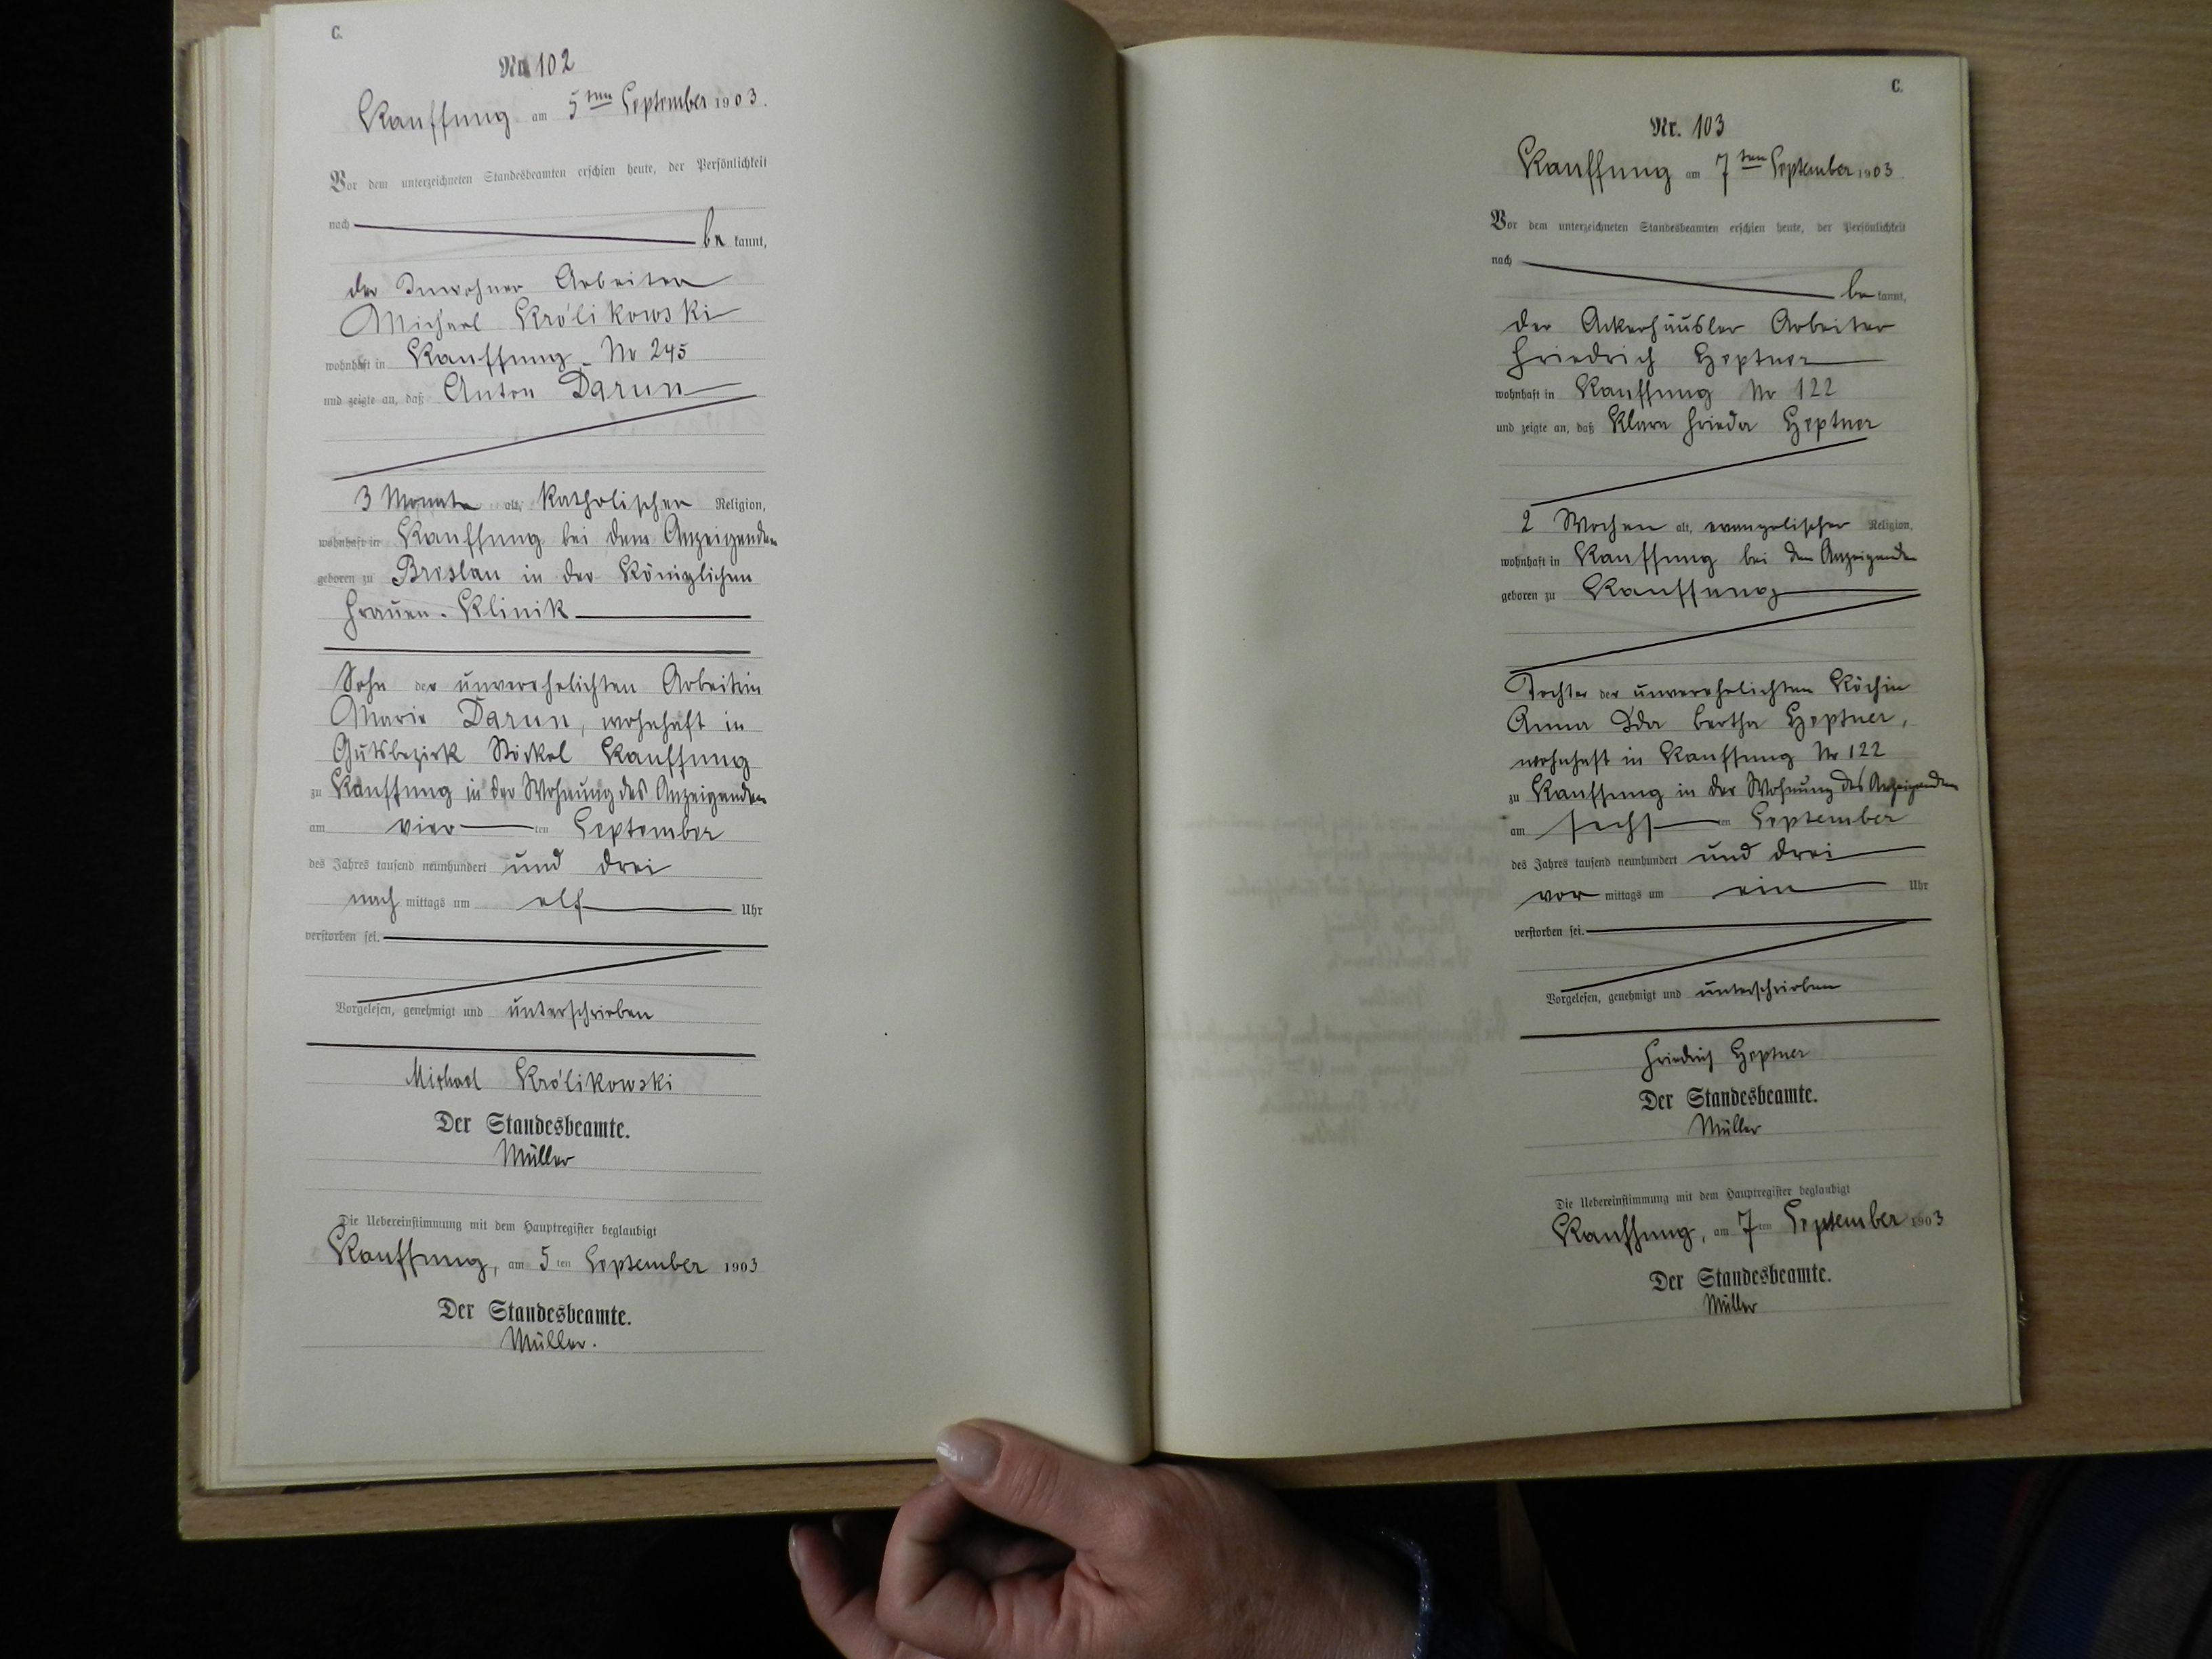 C.
Nr. 102
Kauffung am 5ten September 1903.
Vor dem unterzeichneten Standesbeamten erschien heute, der Persönlichkeit
nach be kannt,
der Inwohner Arbeiter
Michael Królikowski
wohnhaft in Kauffung Nr 245
und zeigte an, daß Anton Darun
3 Monate alt, katholischer Religion,
wohnhaft in Kauffung bei dem Anzeigenden
geboren zu Breslau in der Königlichen
Frauen-Klinik
Sohn der unverehelichten Arbeiterin
Marie Darun, wohnhaft in
Gutsbezirk Stöckel Kauffung
zu Kauffung in der Wohnung des Anzeigenden
am vier ten September
des Jahres tausend neunhundert und drei
nach mittags um elf Uhr
verstorben sei.
Vorgelesen, genehmigt und unterschrieben
Michael Królikowski
Der Standesbeamte.
Müller
Die Uebereinstimmung mit dem Hauptregister beglaubigt
Kauffung, am 5 ten September 1903
Der Standesbeamte.
Müller.
C.
Nr. 103
Kauffung am 7ten September 1903
Vor dem unterzeichneten Standesbeamten erschien heute, der Persönlichkeit
nach be kannt,
der Ackerhäusler Arbeiter
Friedrich Heptner
wohnhaft in Kauffung Nr 122
und zeigte an, daß Klara Frieda Heptner
2 Wochen alt, evangelischer Religion,
wohnhaft in Kauffung bei dem Anzeigenden
geboren zu Kauffung
Tochter der unverehelichten Köchin
Anna Ida Bertha Heptner,
wohnhaft in Kauffung Nr 122
zu Kauffung in der Wohnung des Anzeigenden
am sechs ten September
des Jahres tausend neunhundert und drei
vor mittags um ein Uhr
verstorben sei.
Vorgelesen, genehmigt und unterschrieben
Friedrich Heptner
Der Standesbeamte.
Müller
Die Uebereinstimmung mit dem Hauptregister beglaubigt
Kauffung, am 7 ten September 1903
Der Standesbeamte.
Müller